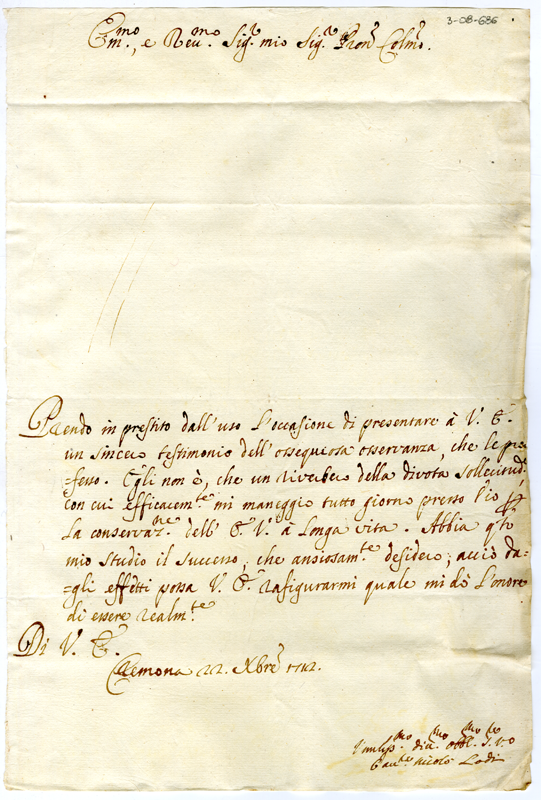 3-08-686
E^mo m., e Reu.^mo Sig.^r mio Sig.^r Pron^e Colmo.
Prendo in prestito dall'uso l'occasione di presentare à V. E.
un sincero testimonio dell'ossequiosa osservanza, che le pro=
=fesso. Egli non è, che un riverbero della divota sollecitud.^e
con cui efficacem.^te mi maneggio tutto giorno presso Dio p
la conservaz.^ne dell' E. V. à longa vita. Abbia q.to
mio studio il successo, che ansiosam.^te desidero; acciò da=
=gli effetti possa V. E. rafigurarmi quale mi dò l'onore
di essere realm.^te
Di V. E.
Cremona 22. Xbre 1712.
Vmiliss.^mo diu.^mo obbl.^mo S.^re
Cau.^re Nicolò Lodi